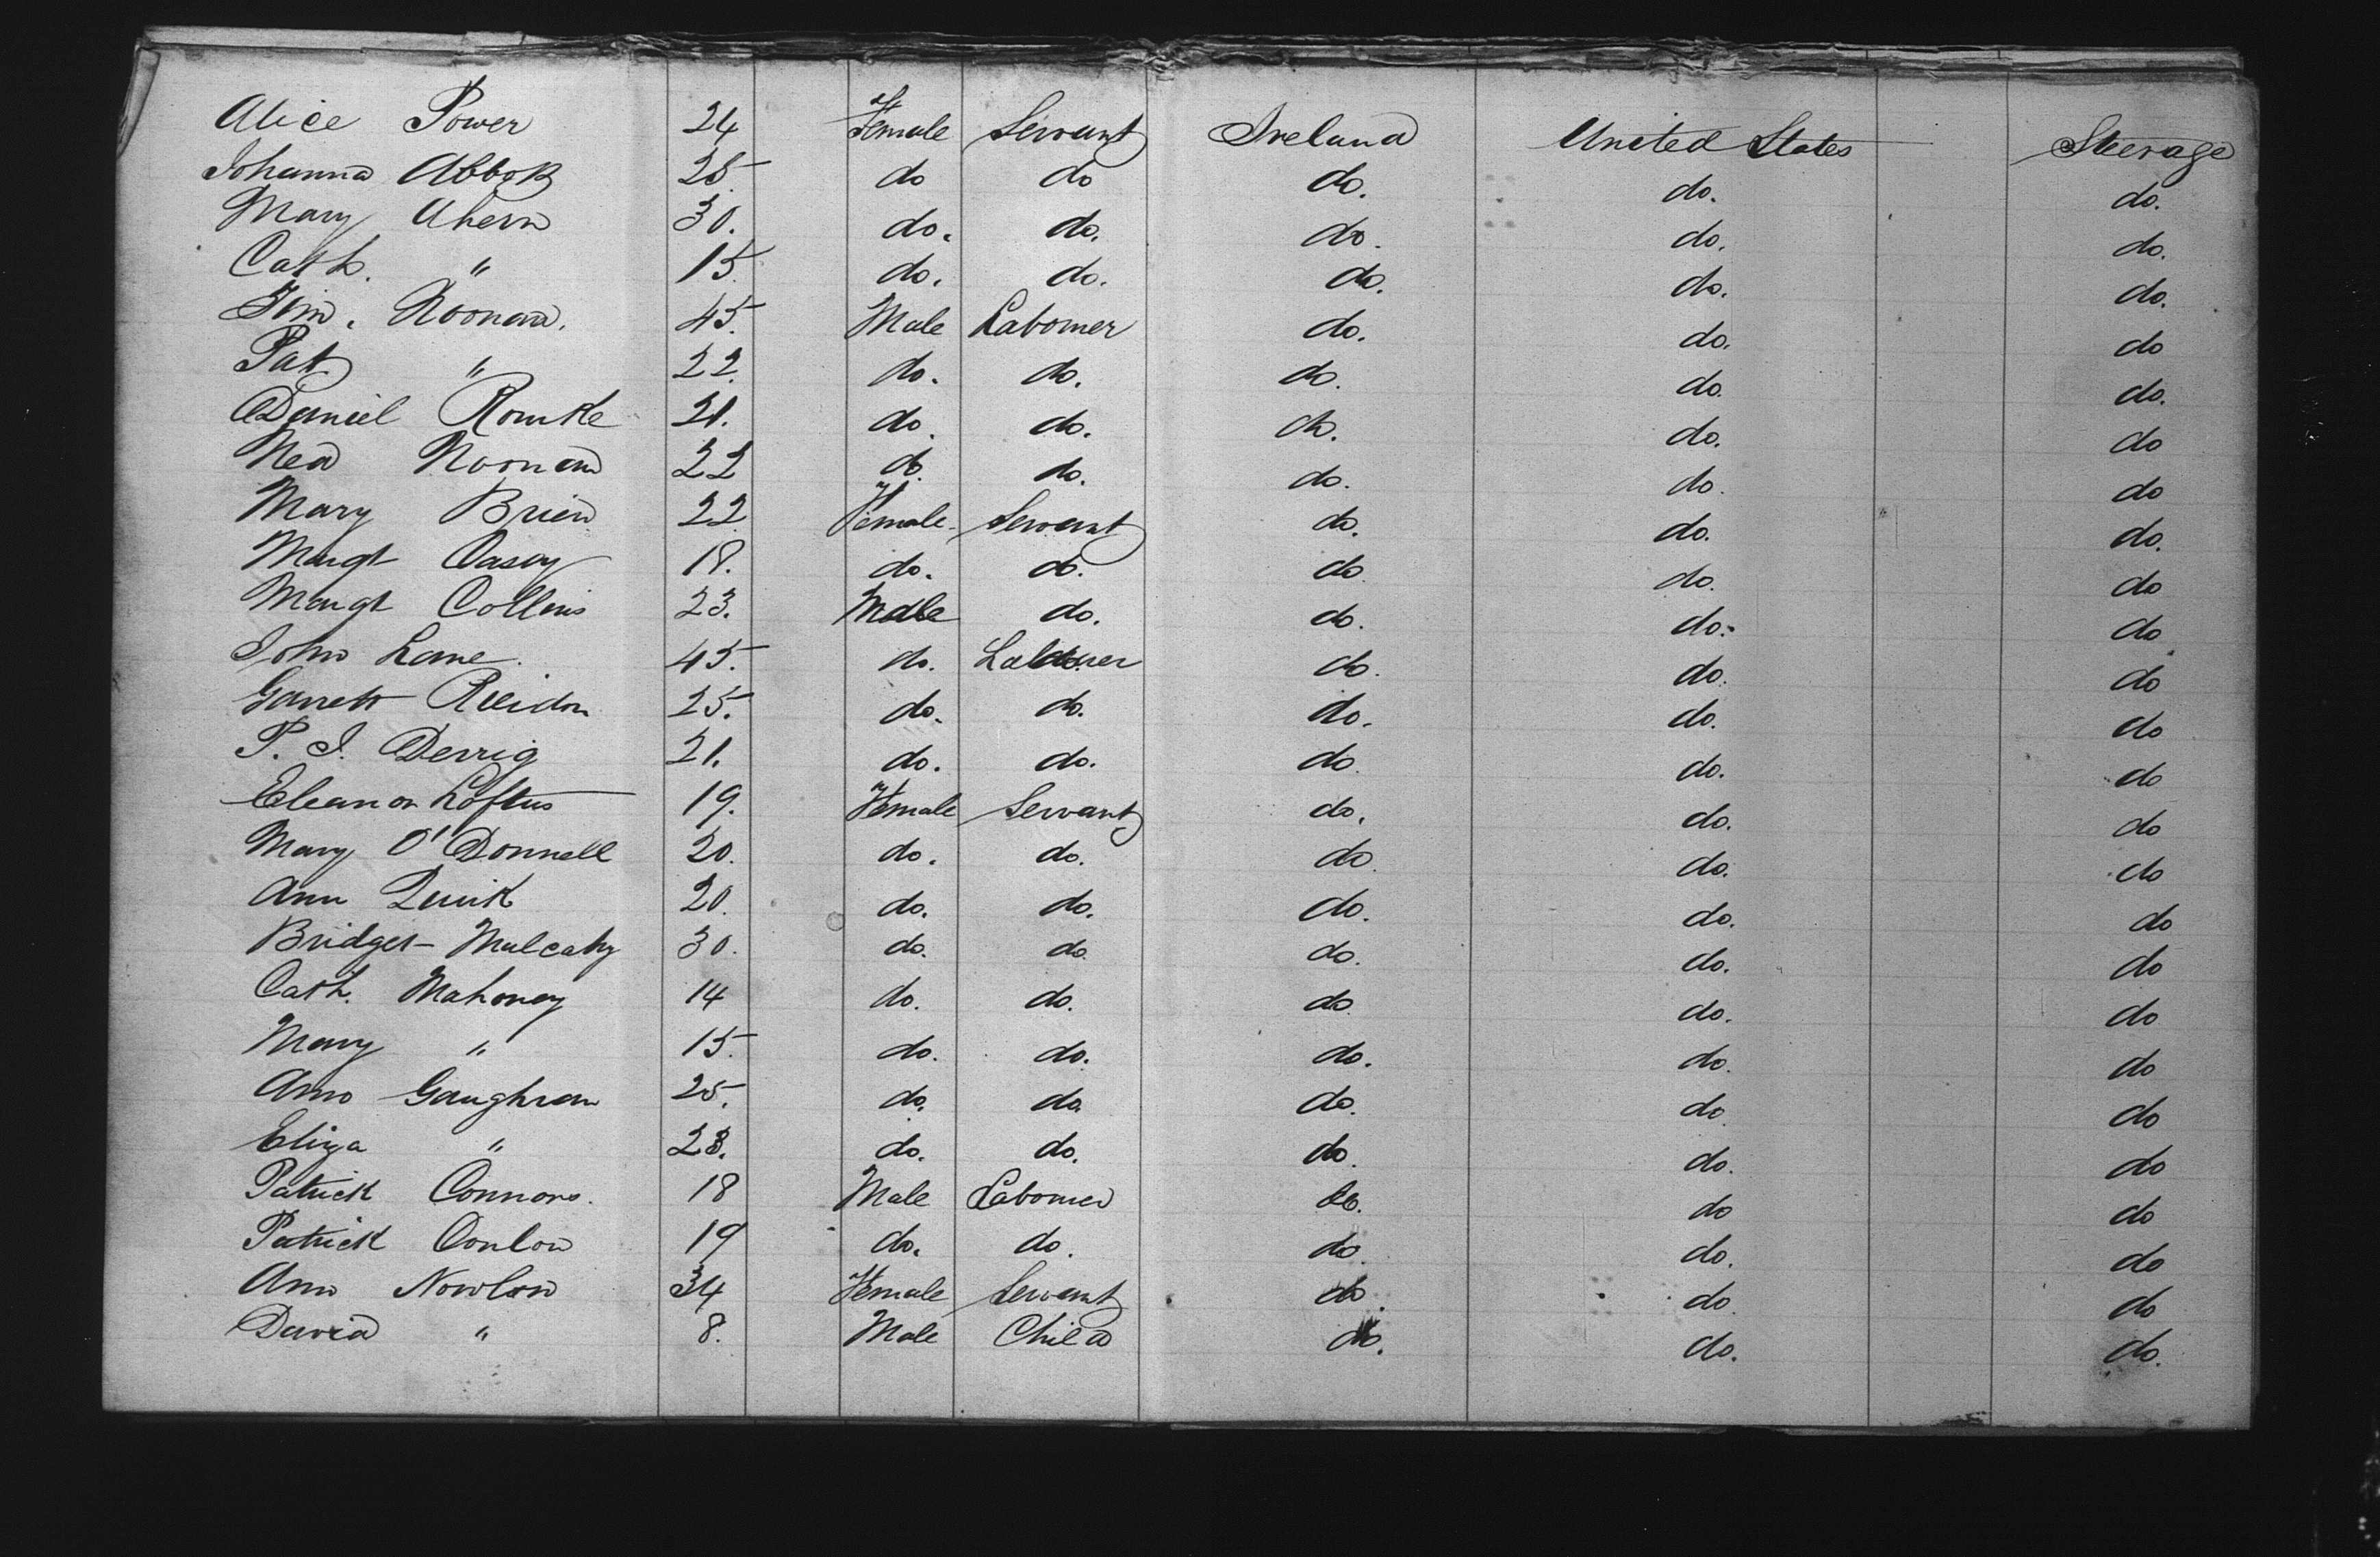 Alice Power 24 Female Servant Ireland United States Steerage
Johanna Abbott 25 do do do. do. do.
Mary Ahern 30. do. do. do. do. do.
Cath. " 15 do. do. do. do. do.
Tim. Noonan. 45. Male Labourer do. do. do
Pat " 22. do. do. do. do. do.
Daniel Rourke 21. do. do. do. do. do
Ned Noonan 22 do. do. do. do. do
Mary Brien 22 Female Servant do. do. do.
Margt Casey 18. do. do. do do. do
Margt Collins 23. Male do. do. do. do
John Lane. 45. do. Labourer do. do. do
Garrett 25. do. do. do. do. do
P. J. Derrig 21. do. do. do. do. do
Eleanor Loftus 19. Female Servant do. do. do
Mary O'Donnell 20. do. do. do. do. do
Ann Quirk 20. do. do. do. do. do
Bridget Mulcahy 30. do. do do. do. do
Cath. Mahoney 14 do. do. do do. do
Mary " 15. do. do. do. do. do
Ann Gaughran 25. do. do. do. do. do
Eliza " 23. do. do. do. do. do
Patrick Connors. 18 Male Labourer do. do do
Patrick Conlon 19 do. do. do do. do
Ann Nowlan 34 Female Servant do do. do
David " 8. Male Child do. do. do.